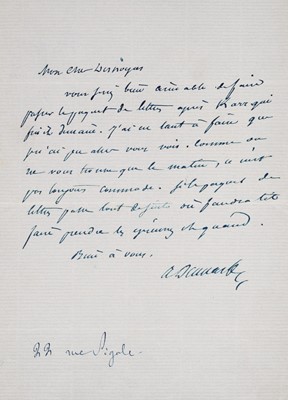 Mon cher Desnoyers
vous serez bien aimable de faire
passer le paquet de lettres après Karr qui
finit Dimanche. j'ai eu tant à faire que
je n'ai pu aller vous voir. Comme on
ne vous trouve que le matin, ce n'est
pas toujours commode. Si le paquet de
lettres passe tout de suite où faudra-t-il
faire prendre les épreuves et quand.
Bien à vous.
22 rue Pigale.